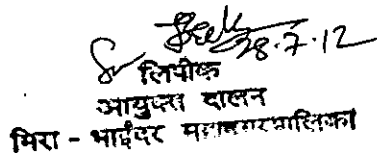 28.7.12
लिपीक
आयुक्त दालन
मिरा - भाईंदर महानगरपालिका